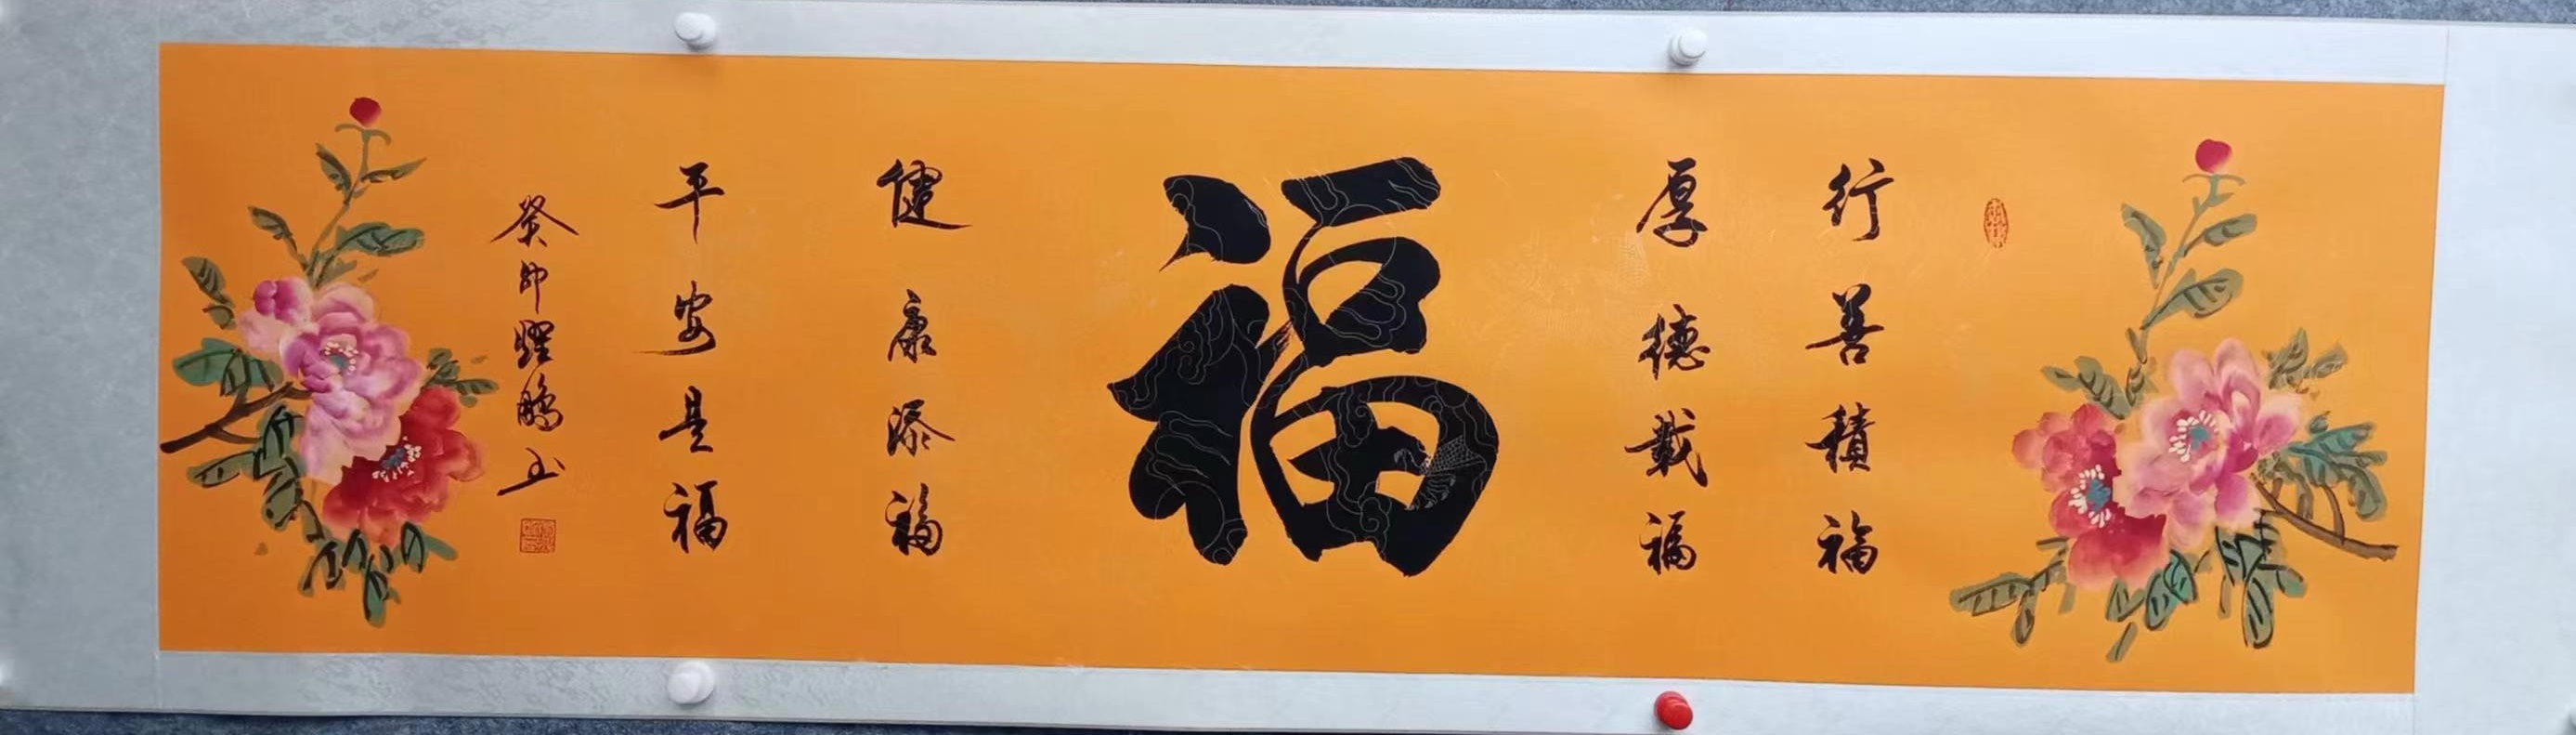 行善積福
厚德載福
福
健康添福
平安是福
癸卯耀鵬书